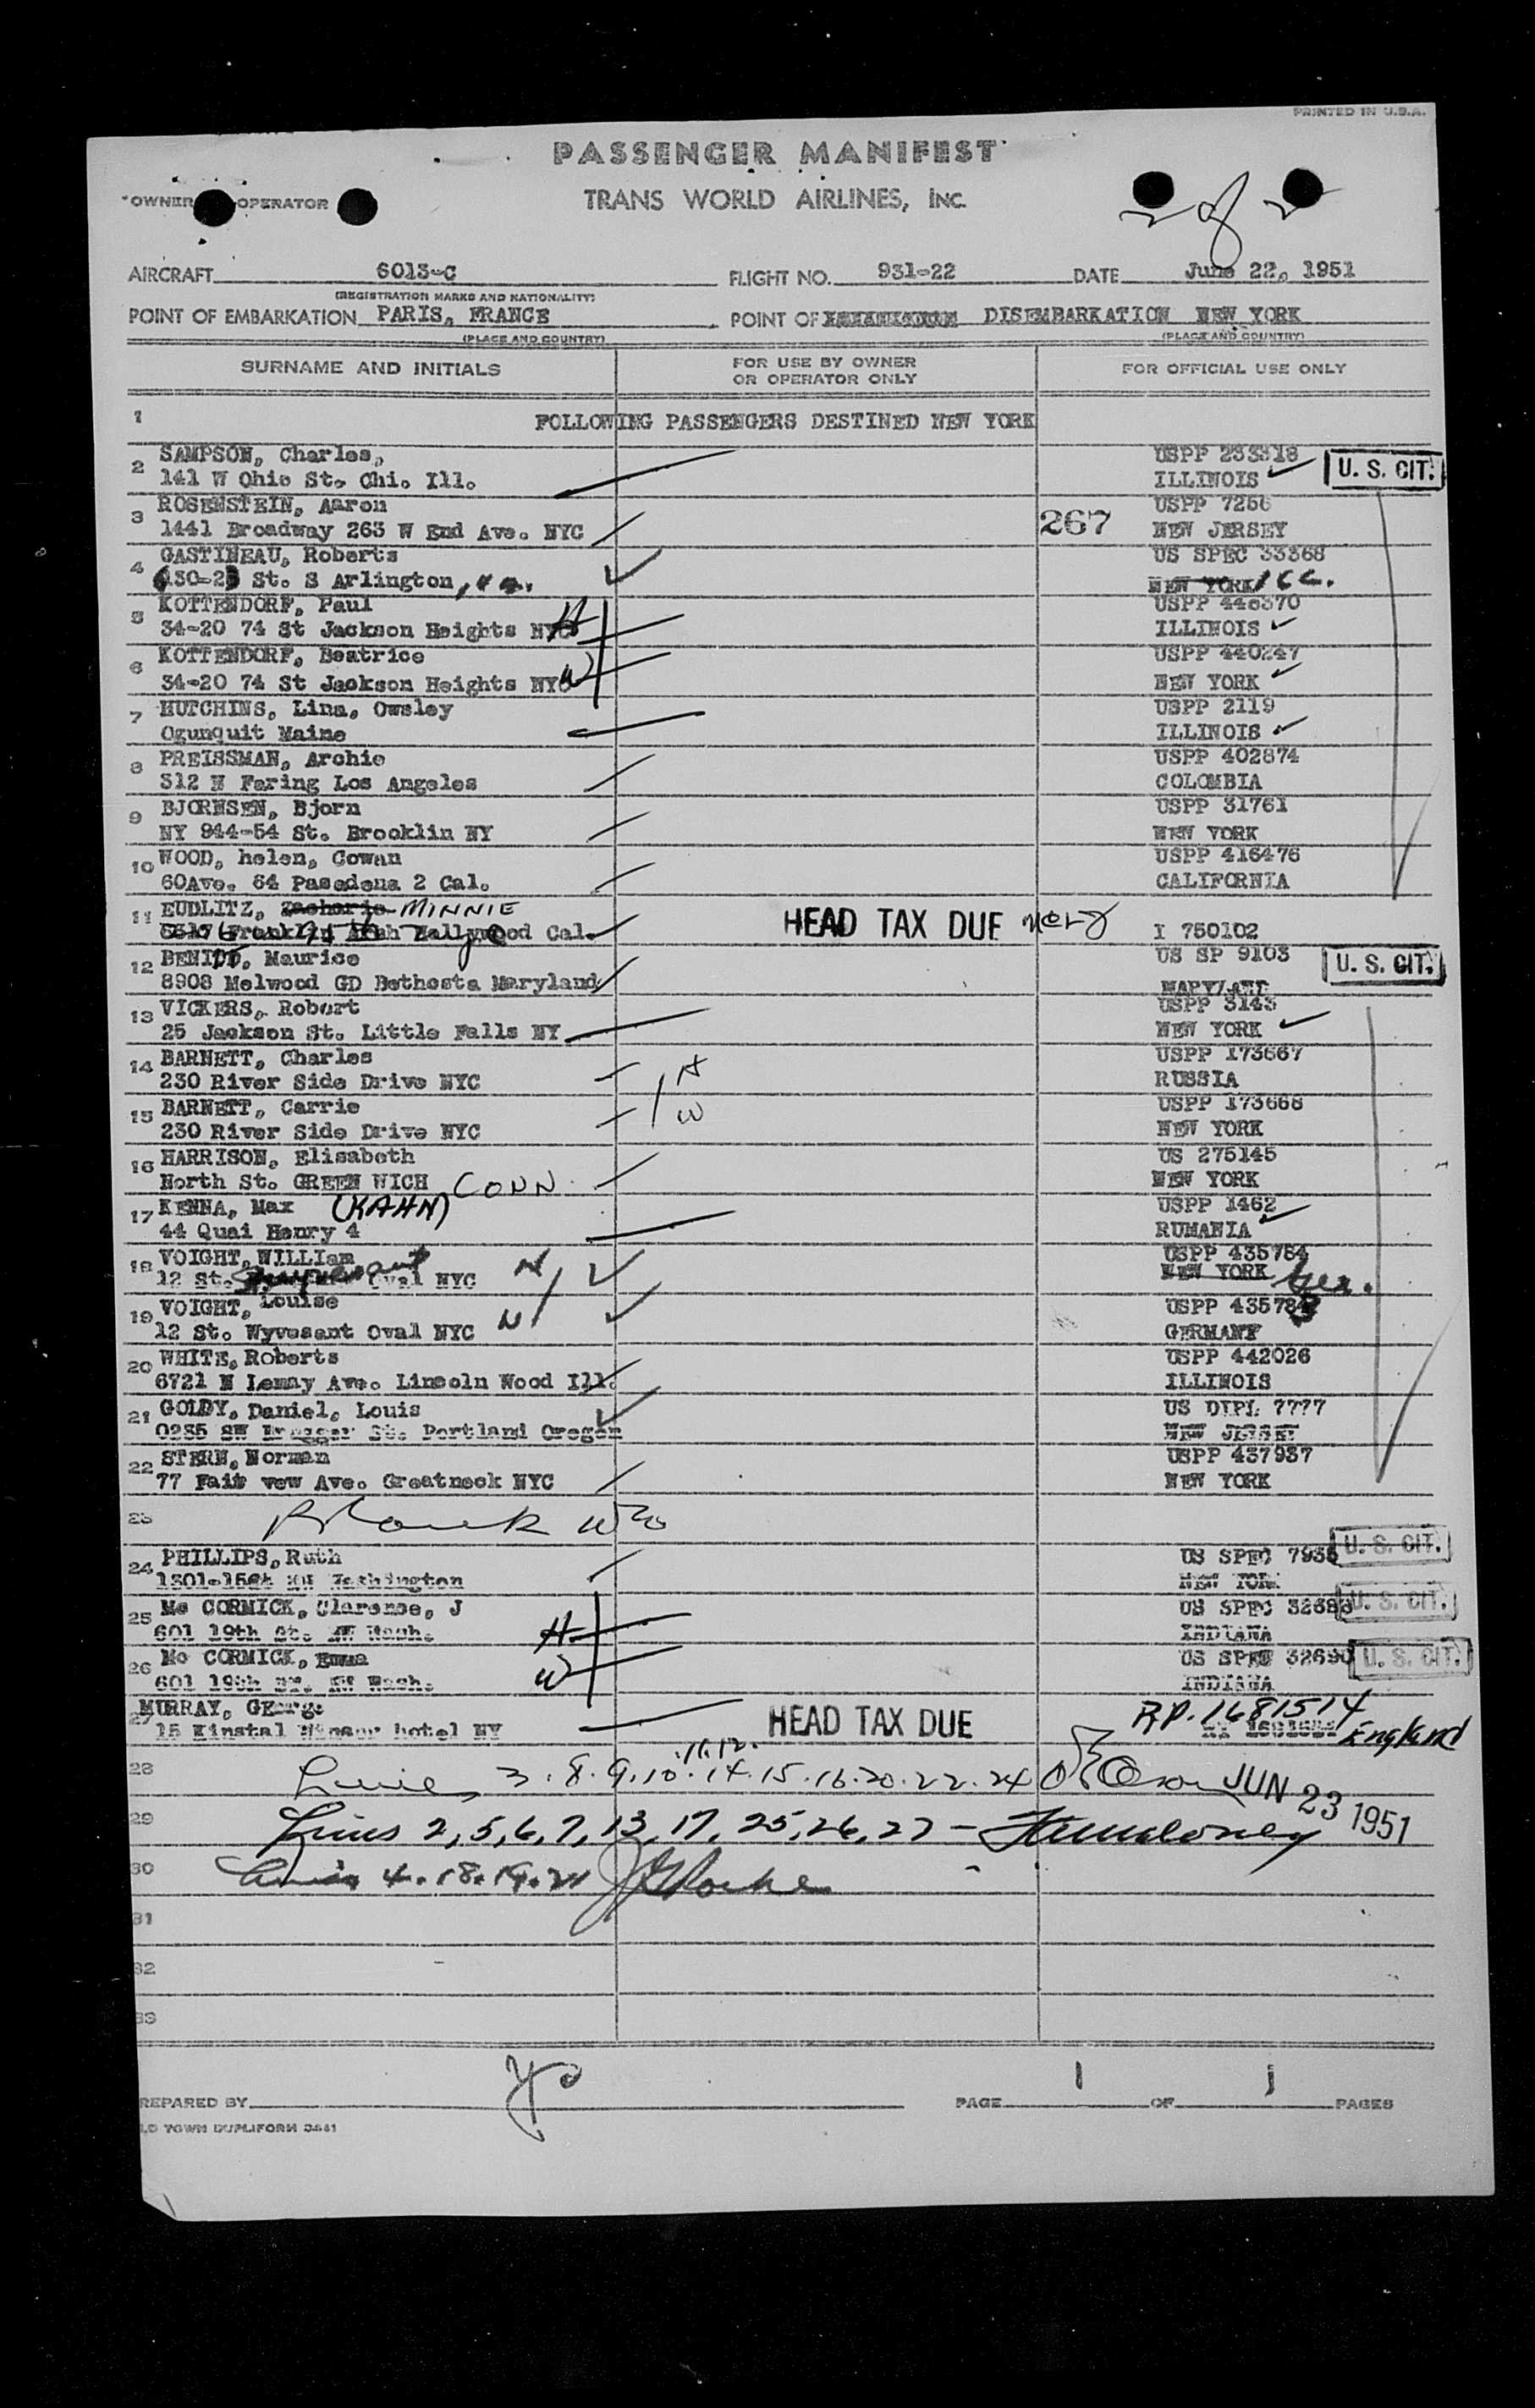 PRINTED IN U.S.A.
PASSENGER MANIFEST
OWNER OPERATOR TRANS WORLD AIRLINES, INC. 2 of 2
AIRCRAFT 6013-C FLIGHT NO. 931-22 DATE June 22, 1951
(REGISTRATION MARKS AND NATIONALITY)
POINT OF EMBARKATION PARIS, FRANCE POINT OF DISEMBARKATION NEW YORK
(PLACE AND COUNTRY) (PLACE AND COUNTRY)
SURNAME AND INITIALS FOR USE BY OWNER OR OPERATOR ONLY FOR OFFICIAL USE ONLY
1 FOLLOWING PASSENGERS DESTINED NEW YORK
2 SAMPSON, Charles, USPP 233318
141 W Ohio St. Chi. Ill. ILLINOIS U. S. CIT.
3 ROSENSTEIN, Aaron USPP 7256
1441 Broadway 263 W End Ave. NYC 267 NEW JERSEY
4 GASTINEAU, Roberts US SPEC 33368
St. S Arlington, NEW YORK
5 KOTTENDORF, Paul USPP 446370
34-20 74 St Jackson Heights NYC H ILLINOIS
6 KOTTENDORF, Beatrice USPP 440247
34-20 74 St Jackson Heights NYC W NEW YORK
7 HUTCHINS, Lina, Owsley USPP 2119
Ogunquit Maine ILLINOIS
8 PREISSMAN, Archie USPP 402874
312 N Faring Los Angeles COLOMBIA
9 BJORNSEN, Bjorn USPP 31761
NY 944-54 St. Brooklin NY NEW YORK
10 WOOD, helen, Cowan USPP 416476
60Ave. 64 Pasadena 2 Cal. CALIFORNIA
11 EUDLITZ, Zacharie MINNIE
Franklin Hollywood Cal. HEAD TAX DUE I 750102
12 Maurice US SP 9103
8908 Melwood GD Bethesta Maryland MARYLAND U. S. CIT.
13 VICKERS, Robert USPP 3143
25 Jackson St. Little Falls NY NEW YORK
14 BARNETT, Charles USPP 173667
230 River Side Drive NYC H RUSSIA
15 BARNETT, Carrie USPP 173668
230 River Side Drive NYC W NEW YORK
16 HARRISON, Elisabeth US 275145
North St. GREEN WICH CONN. NEW YORK
17 KENNA, Max (KAHN) USPP 1462
44 Quai Henry 4 RUMANIA
18 VOIGHT, WILLIam USPP 435784
12 St. Oval NYC H NEW YORK Ger.
19 VOIGHT, Louise USPP 435783
12 St. Wyvesant Oval NYC W GERMANY
20 WHITE, Roberts USPP 442026
6721 N Lemay Ave. Lincoln Wood Ill. ILLINOIS
21 GOLDY, Daniel, Louis US DIPL 7777
0235 SW St. Portland Oregon NEW JERSEY
22 STERN, Norman USPP 437937
77 Fair vew Ave. Greatneck NYC NEW YORK
23 Blank
24 PHILLIPS, Ruth US SPEC 7935 U. S. CIT.
NW Washington NEW YORK
25 Mc CORMICK, Clarence, J US SPEC U. S. CIT.
601 19th St. NW Wash. H INDIANA
26 Mc CORMICK, Emma US SPEC 32690 U. S. CIT.
601 19th ST. NW Wash. W INDIANA
27 MURRAY, George R.P. 1681514
15 hotel NY HEAD TAX DUE England
11.12.
28 Lines 3.8.9.10.14.15.16.20.22.24 JUN 23 1951
29 Lines 2,5,6,7,13,17,25,26,27 -
30 Lines 4.18.19.21
31
32
33
REPARED BY PAGE 1 OF 1 PAGES
LD TOWN DUPLIFORM